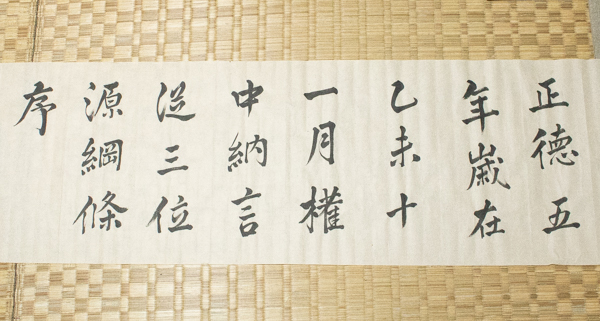 正德五
年歲在
乙未十
一月權
中納言
從三位
源綱條
序